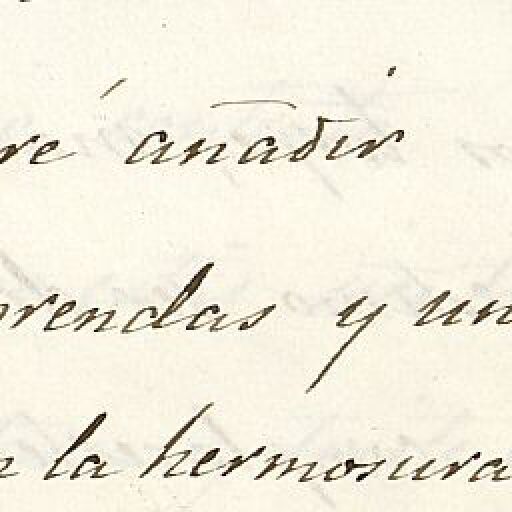 ré añadir
prendas y un
la hermosura